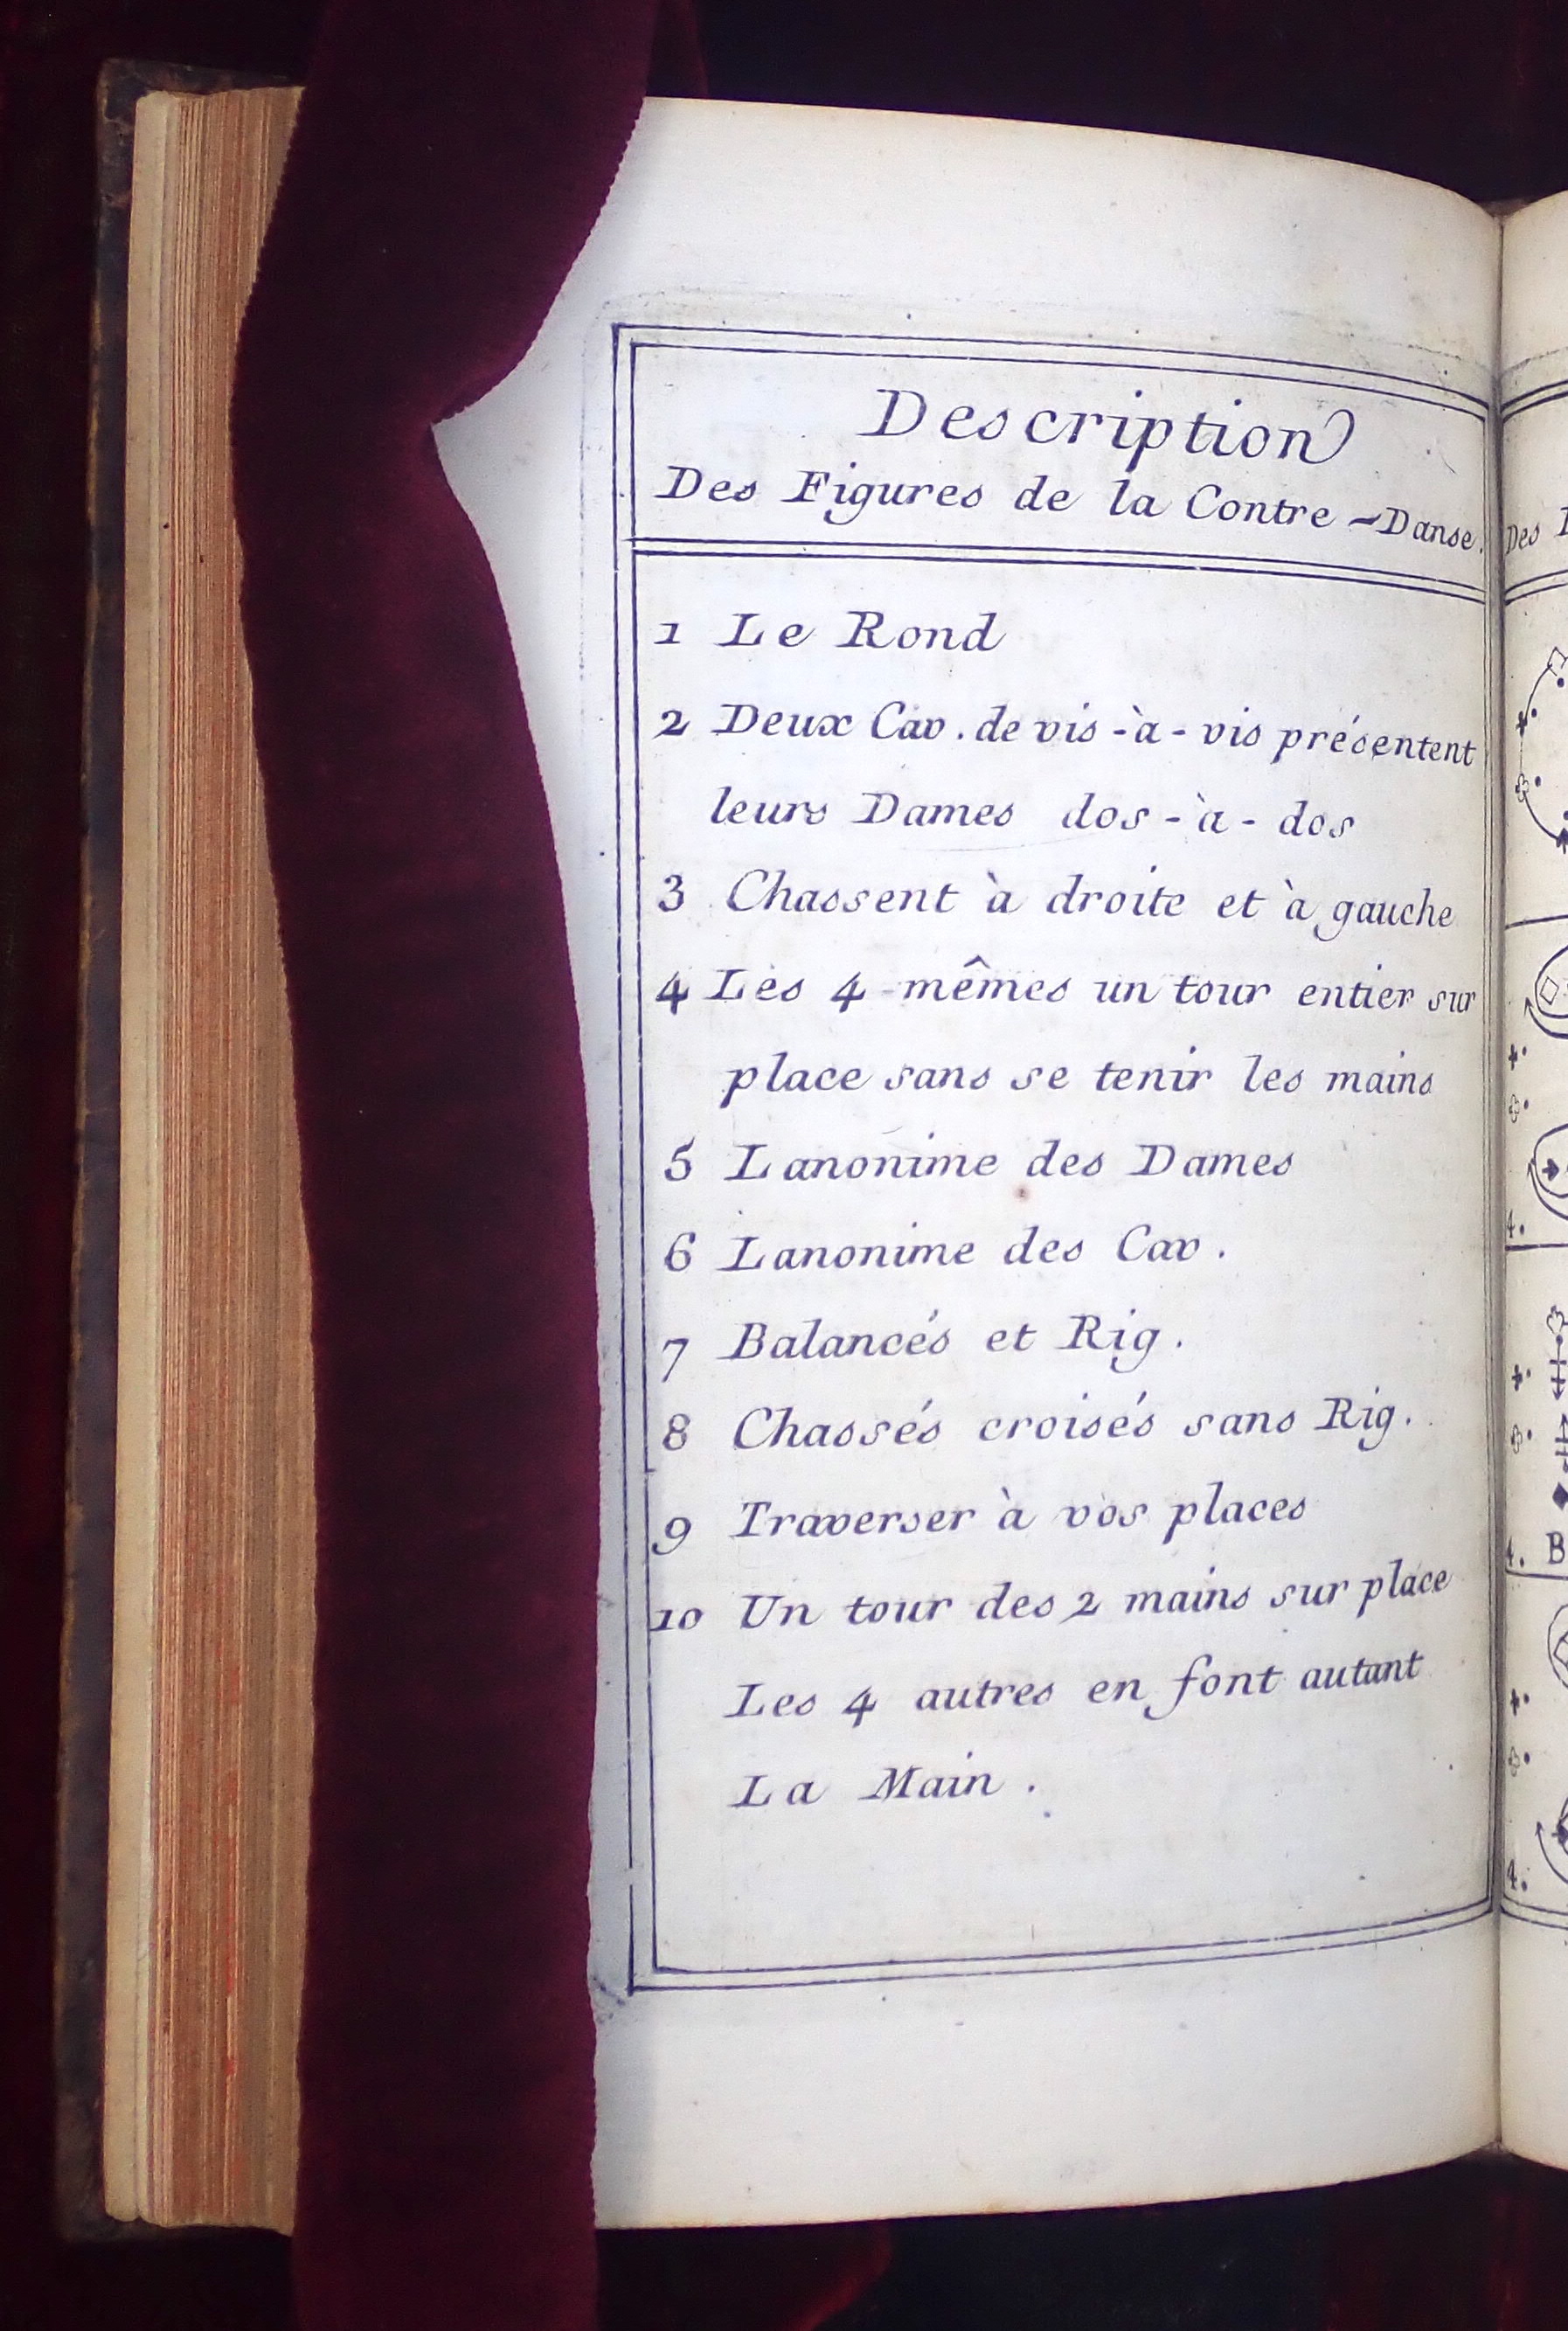 Description
Des Figures de la Contre-Danse.
1 Le Rond
2 Deux Cav. de vis-à-vis présentent
leurs Dames dos-à-dos
3 Chassent à droite et à gauche
4 Les 4 mêmes un tour entier sur
place sans se tenir les mains
5 Lanonime des Dames
6 Lanonime des Cav.
7 Balancés et Rig.
8 Chassés croisés sans Rig.
9 Traverser à vos places
10 Un tour des 2 mains sur place
Les 4 autres en font autant
La Main.
Des
4.
4. B
4.